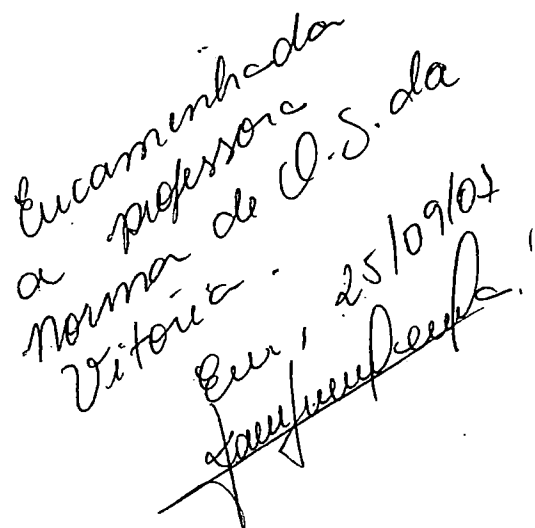 Encaminhado
a professora
Norma de O.S. da
Vitória.
Em, 25/09/07